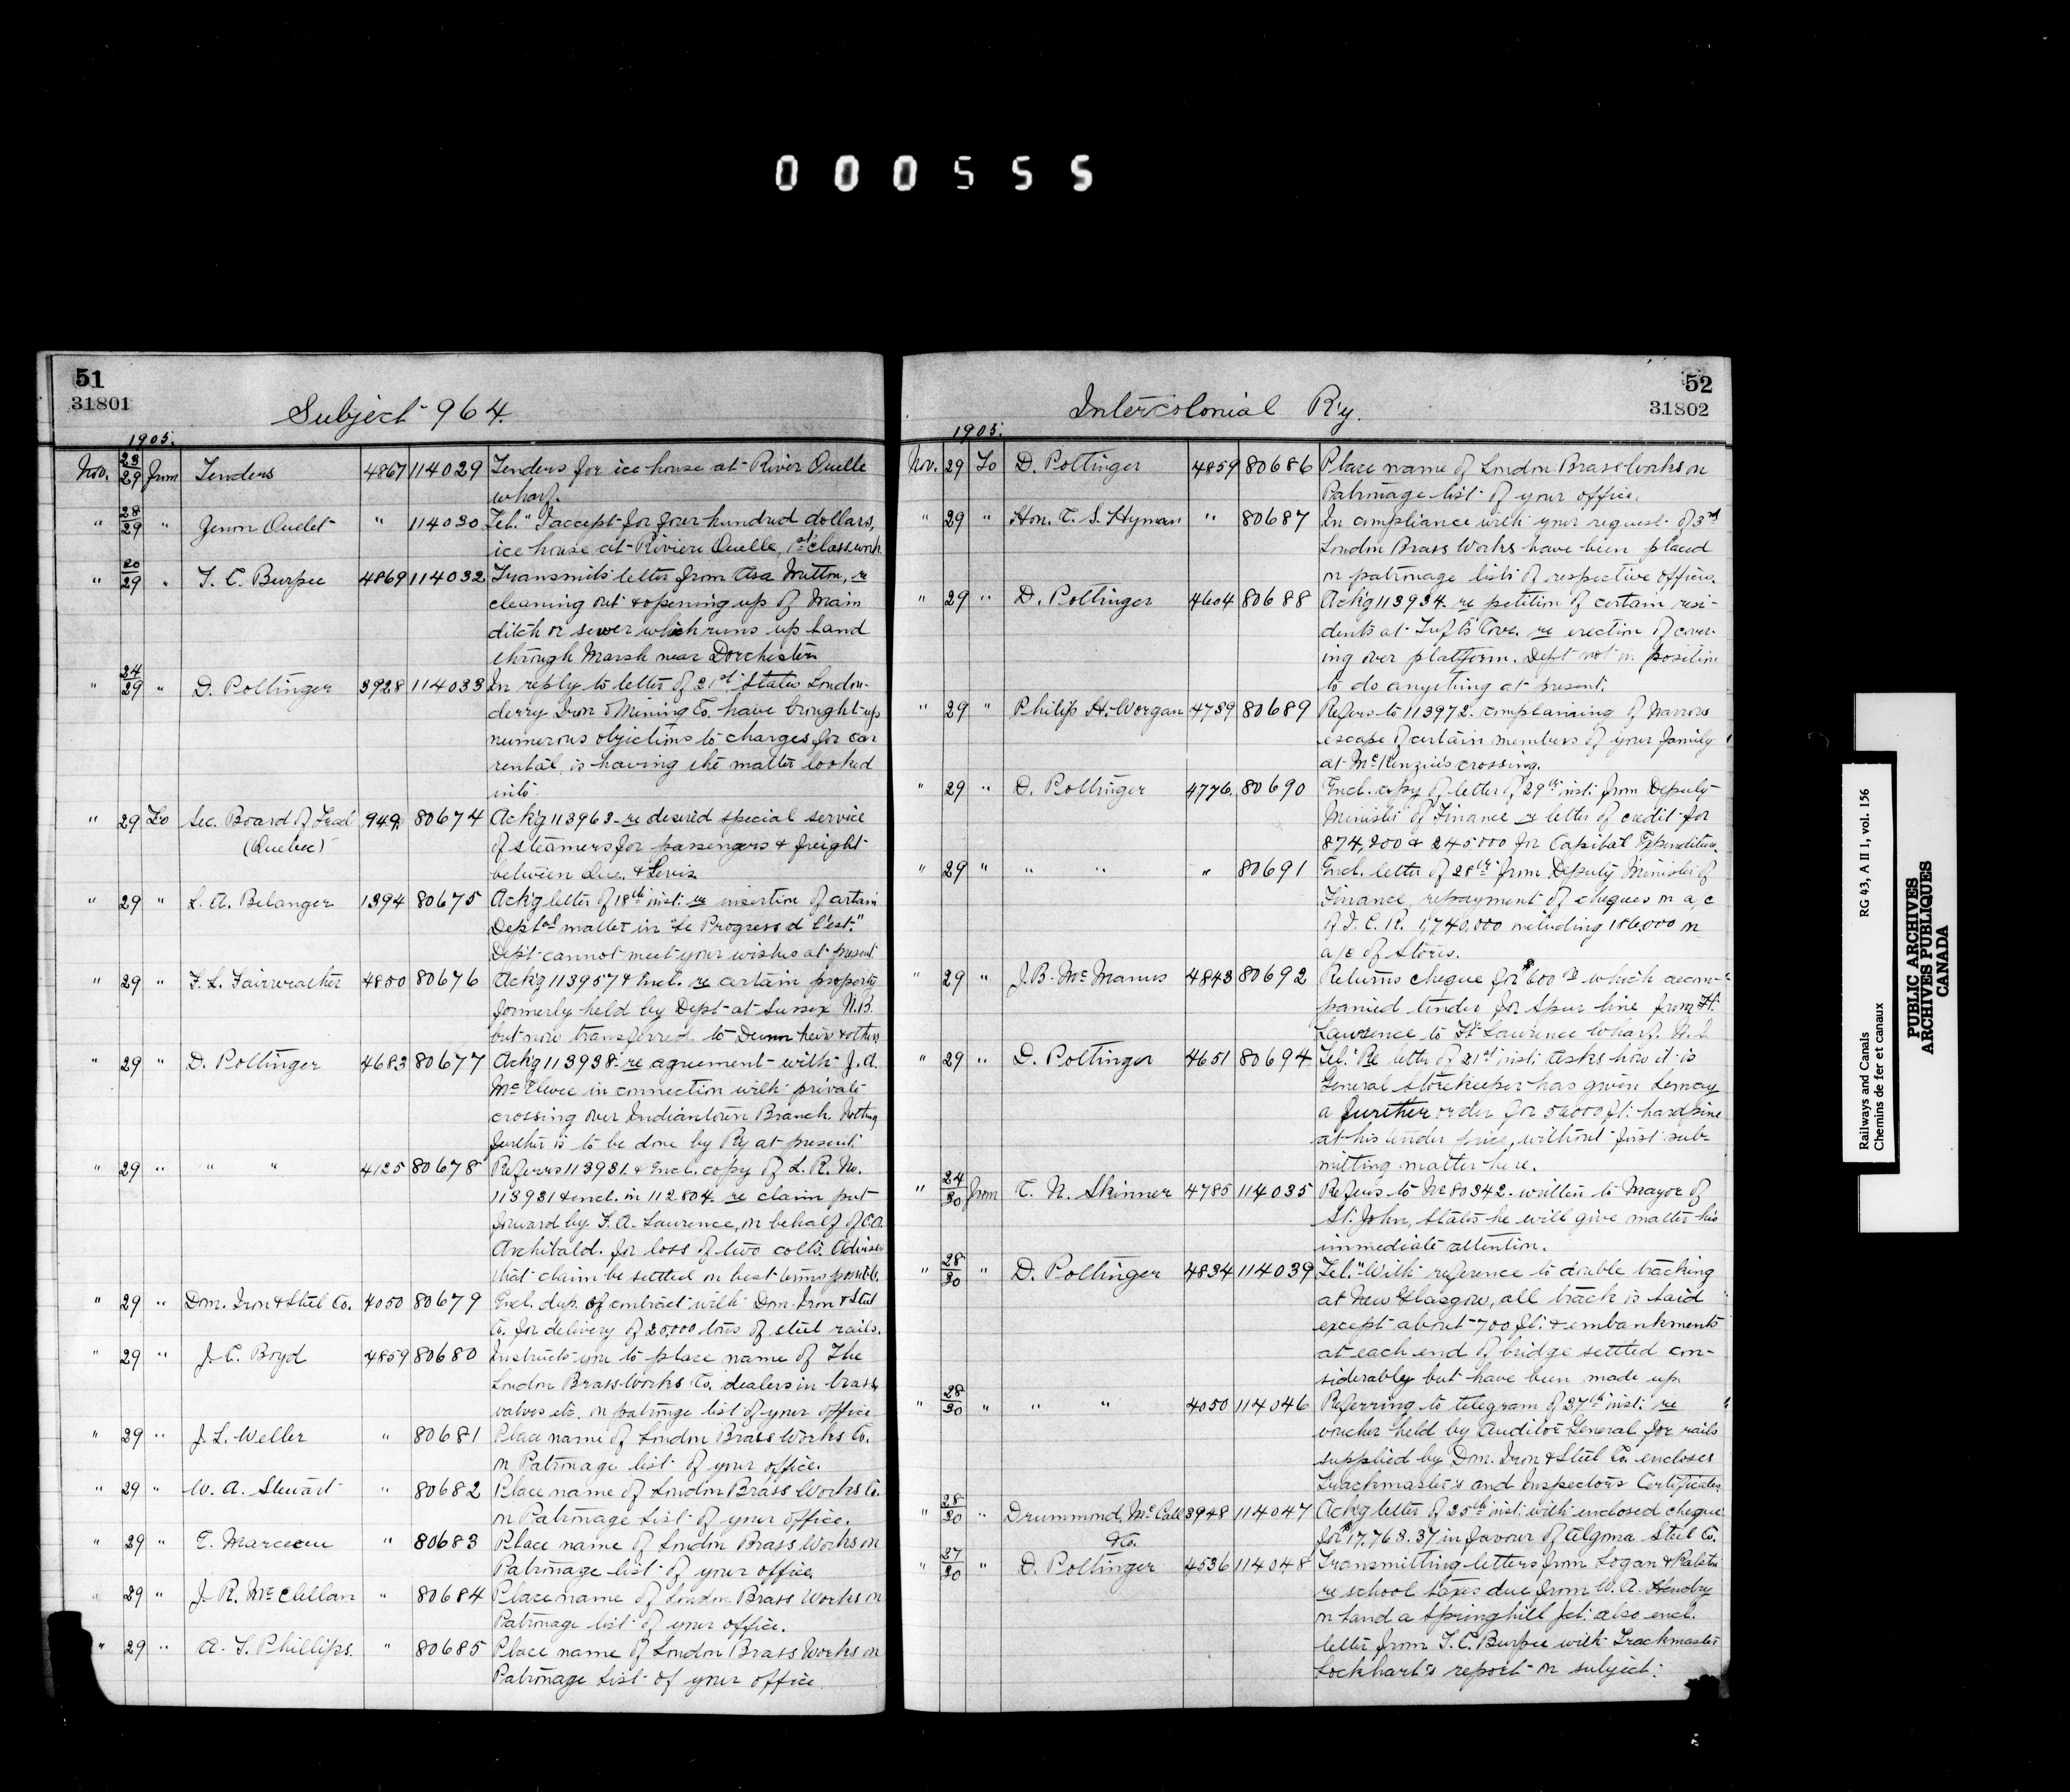 000555
51
31801
Subject 964.
1905.
Nov. 28/29 from Tenders 4867 114029 Tenders for ice house at River Ouelle
wharf.
" 28/29 " Zenon Ouelet " 114030 Tel. "I accept for four hundred dollars,
ice house at Riviere Ouelle, 1st class work
" 20/29 " T. C. Burpee 4869 114032 Transmits letter from Asa Mitton, re
cleaning out & opening up of main
ditch or sewer which runs up land
through Marsh near Dorchester
" 24/29 " D. Pottinger 3928 114033 In reply to letter of 21st States London-
derry Iron & Mining Co. have brought up
numerous objections to charges for car
rental, is having the matter looked
into.
" 29 To Sec. Board of Trad 949. 80674 Ack'g 113963 re desired special service
(Quebec) of steamers for passengers & freight
between Que. & Levis
" 29 " L. A. Belanger 1394 80675 Ack'g letter of 18th inst. re insertion of certain
Deptal matter in "Le Progress d l'est."
Dept cannot meet your wishes at present
" 29 " F. L. Fairweather 4800 80676 Ack'g 113957 & Incl. re certain property
formerly held by Dept at Sussex N.B.
but now transferred to Dunn heirs & others
" 29 " D. Pottinger 4683 80677 Ack'g 113938 re agreement with J. A.
in connection with private
crossing over Indiantown Branch. Nothing
further is to be done by Ry at present.
" 29 " " " 4125 80678 Referrs 113931 & Encl. copy of L. R. No.
113931 & encl. in 112804. re claim put
forward by F. A. Laurence, on behalf of C. A.
Archibald. for loss of two colts. Advises
that claim be settled on best terms possible.
" 29 " Dom. Iron & Steel Co. 4050 80679 Encl. dup. of contract with Dom. Iron & Steel
Co. for delivery of 20,000 tons of steel rails.
" 29 " J. C. Boyd 4859 80680 Instructs you to place name of The
London Brass Works Co. dealers in brass,
valves etc. on patronage list of your office
" 29 " J. L. Weller " 80681 Place name of London Brass Works Co.
on Patronage list of your office.
" 29 " W. A. Stewart " 80682 Place name of London Brass Works Co.
on Patronage List of your office.
" 29 " E. Marceau " 80683 Place name of London Brass Works on
Patronage list of your office.
" 29 " J. R. McClellan " 80684 Place name of London Brass Works on
Patronage list of your office.
" 29 " A. T. Phillips. " 80685 Place name of London Brass Works on
Patronage List of your office.
52
31802
Intercolonial Ry.
1905.
Nov. 29 To D. Pottinger 4859 80686 Place name of London Brass Works on
Patronage list of your office.
" 29 " Hon. C. S. Hyman " 80687 In compliance with your request of 3rd
London Brass Works have been placed
on patronage lists of respective offices.
" 29 " D. Pottinger 4604 80688 Ack'g 113934 re petition of certain resi-
dents at Tufts Cove. re erection of cover-
ing over platform. Dept not in position
to do anything at present.
" 29 " Philip H. Worgan 4739 80689 Refers to 113972. complaining of narrow
escape of certain members of your family
at McKenzie's crossing.
" 29 " D. Pottinger 4776. 80690 Encl. copy of letter of 29th inst. from Deputy
Minister of Finance re letter of credit for
874,200 & 245000 for Capital Expenditure.
" 29 " " " " 80691 Encl. letter of 28th from Deputy Minister of
Finance, repayment of cheques on a/c
of I. C. R. 1,740,000 including 186,000 on
a/c of Stores.
" 29 " J. B. McManus 4843 80692 Returns cheque for $600 which accom-
panied tender for Spur line from Ft.
Lawrence to Ft Lawrence Wharf. N. S
" 29 " D. Pottinger 4651 80694 Tel. "Re letter of 21st inst. asks how it is
General Storekeeper has given Lemay
a further order for 50000 ft. hard pine
at his tender price, without first sub-
mitting matter here.
" 24/30 from C. N. Skinner 4785 114035 Refers to No 80342. written to Mayor of
St. John, States he will give matter his
immediate attention.
" 28/30 " D. Pottinger 4834 114039 Tel. "With reference to double tracking
at New Glasgow, all track is laid
except about 700 ft. & embankments
at each end of bridge settled con-
siderably but have been made up.
" 28/30 " " " 4050 114046 Referring to telegram of 27th inst. re
voucher held by Auditor General for rails
supplied by Dom. Iron & Steel Co. encloses
Trackmaster's and Inspectors Certificates
" 28/30 " Drummond, McCall 3948 114047 Ack'g letter of 25th inst. with enclosed cheque
& Co. for $17,763.37 in favour of Algoma Steel Co.
" 27/30 " D. Pottinger 4536 114048 Transmitting letters from Logan & Ralston
re school taxes due from W. A. Hendry
on land a Springhill Jct. also encl.
letter from T. C. Burpee with Trackmaster
Lockhart's report on subject.
Railways and Canals RG 43, A II 1, vol. 156
Chemins de fer et canaux
PUBLIC ARCHIVES
ARCHIVES PUBLIQUES
CANADA